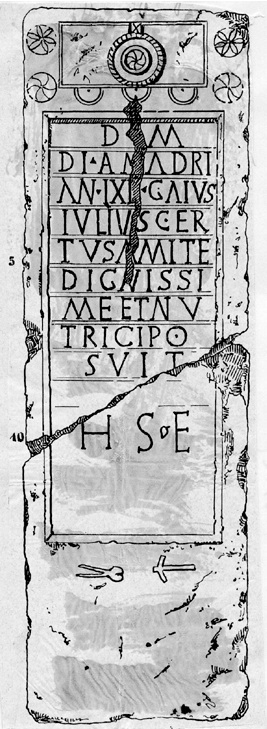 D M
DI·AMADRI
AN·IXI·GAIVS
IVLIVSCER
5 TVSAMITE
DIGNISSI
MEETNV
TRICIPO
SVIT
10 H S E